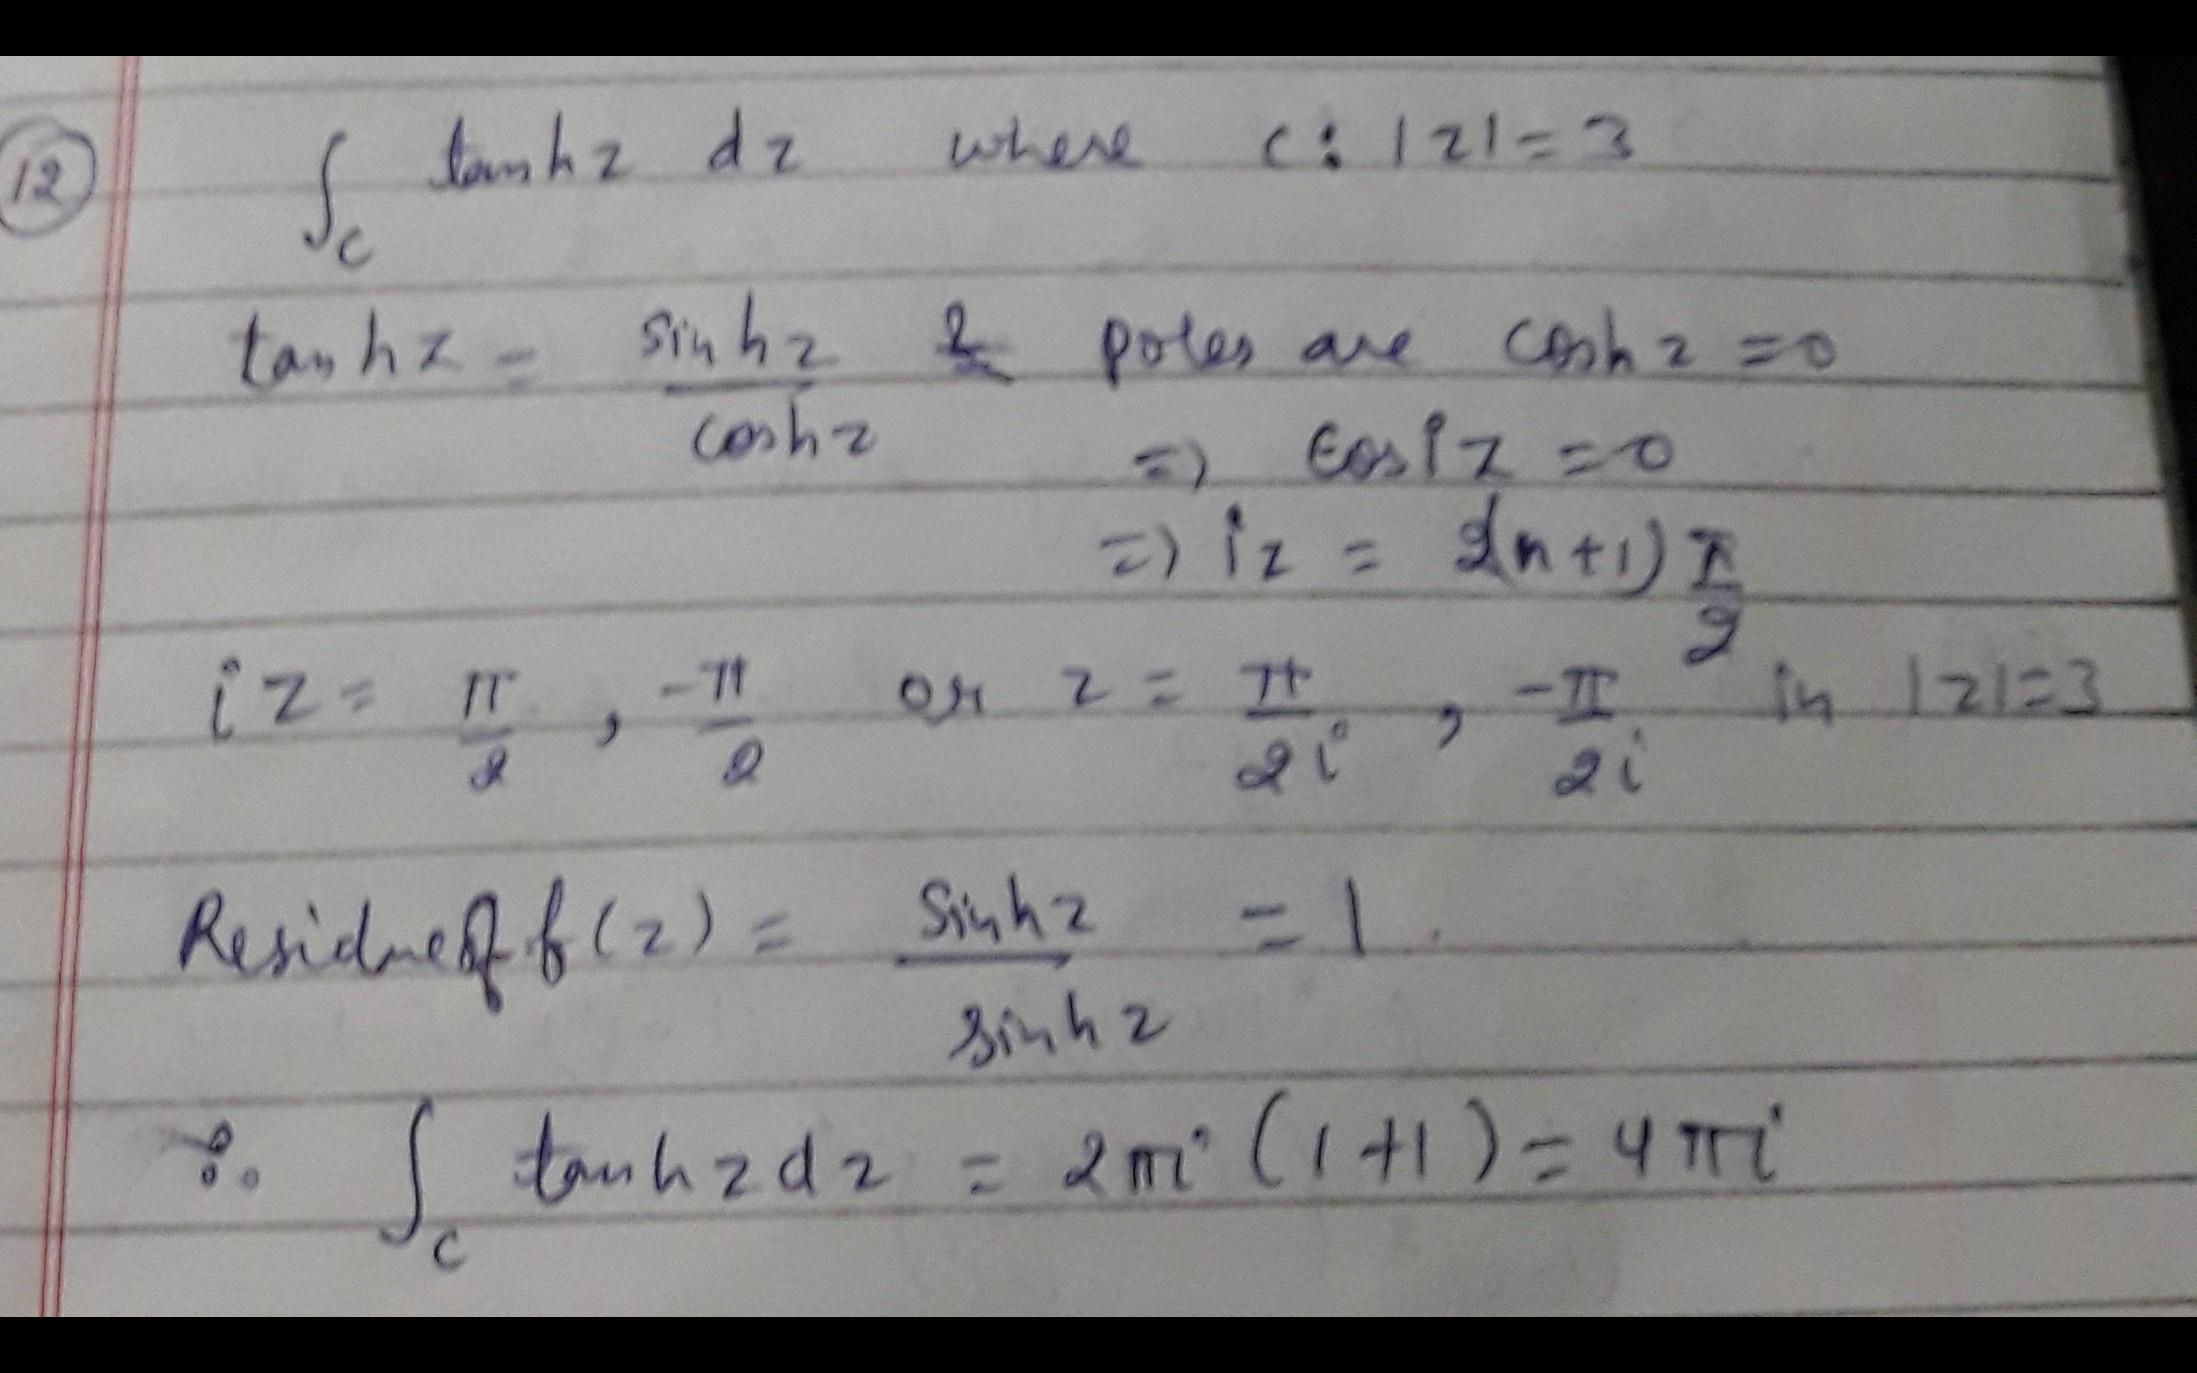 12 ∫_C tanhz dz where C: |z|=3
tanhz = sinhz/coshz & poles are coshz =0
=) cosiz =0
=) iz = 2(n+1) π/2
iz = π/2 , -π/2 or z = π/2i , -π/2i in |z|=3
Residue of f(z) = sinhz/sinhz = 1.
∴ ∫_C tanhzdz = 2πi (1+1) = 4πi